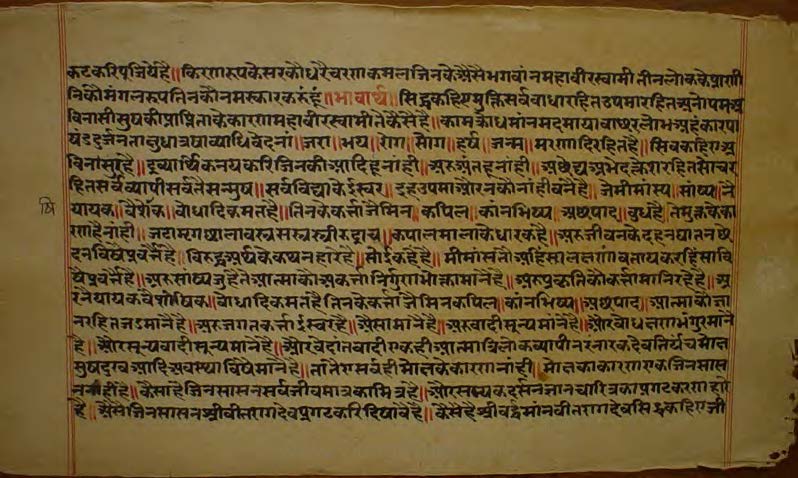 कटकरि पूजिर्यहै॥ किरणरूप केसर कौ धरै चरणकमल जिनके अैसे भगवांन महावीर स्वामी तीन लोक के प्राणी
नि कौं मंगलरूप तिन कौ नमस्कार करूं हूं॥ भावार्थ॥ सिद्ध कहिए मुक्ति सर्व वाधारहित उपमारहित अनोपम अ
विनासी सुष की प्राप्ति ताके कारण महावीर स्वामी ते कैसे है॥ काम क्रोध मांन मद माया वाछर लोभ अहंकार पा
षंड दुर्जनता लुधा त्रषा व्याधि वेदनां॥ जरा॥ भय॥ रोग॥ सोग॥ हर्ष॥ जन्म॥ मरणादि रहित है॥ सिव कहिए अ
विनासुर है॥ द्रव्यार्थिक नय करि जिन की आदि ह नांही॥ अरु अंत ह नांही॥ अछेद्य अभेद क्लेश रहित सो चर
हित सर्वव्यापी सर्व तै सन्मुष॥ सर्व विद्या के ईस्वर॥ इह उपमा और न को नांही वनै है॥ जैमीमांस्य॥ सांष्य॥ नै
षि
यायक॥ वैशेक॥ वोधादिक मत है॥ तिनके कर्त्ता जैमिन॥ कपिल॥ कांनभिष्य॥ अछपाद॥ वुध है॥ ते मुक्त के का
रण है नांही॥ जटा मृगछाला वस्त्र सस्त्र स्त्री रुद्राच॥ कपालमाला के धारक है॥ अरु जीवन के दहन घातन छे
दन विषै प्रवर्त्तै है॥ विरुद्ध अर्थ के कथनहारे है॥ सोई कहै है॥ मीमांस तौ अहिंसा लक्षण वताय करि हिंसा वि
षै प्रवर्त्तै है॥ अरु सांष्य जु है ते आत्मा कौं अकर्त्ता निर्गुण भोक्ता मानै है॥ अरु प्रकृति कौ कर्त्ता मांनि रहै है॥ अ
र नैयायक वैषेषिक॥ वोधादि मत है तिनके कर्त्ता जैमिन कपिल॥ कांनभिष्य॥ अछपाद॥ आत्मा कौ ज्ञा
नरहित जड मानै है॥ अरु जगत कर्त्ता ईस्वर है॥ अैसा मानै है॥ अरु वादी सून्य मांनै है॥ और वोध क्षणभंगुर मानै
है॥ और सून्यवादी सून्य मानै है॥ और वेदांतवादी एक ही आत्मा त्रिलोकव्यापी नर नारक देव तिर्यंच मोक्ष
सुष दुष आदि अवस्था विषै मानै है॥ तातै ए सर्व ही मोक्ष के कारण नांही॥ मोक्ष का कारण एक जिन सास
न नांहीं है॥ कैसा है जिनसासन सर्व जीव मात्र का मित्र है॥ और सम्यक दर्सन ज्ञान चारित्र का प्रगट करणहारे
है॥ अैसे जिनसासन श्री वीतरागदेव प्रगट करि दिषावै है॥ कैसे है श्री वर्द्धमांन वीतरागदेव सिद्ध कहिए जी